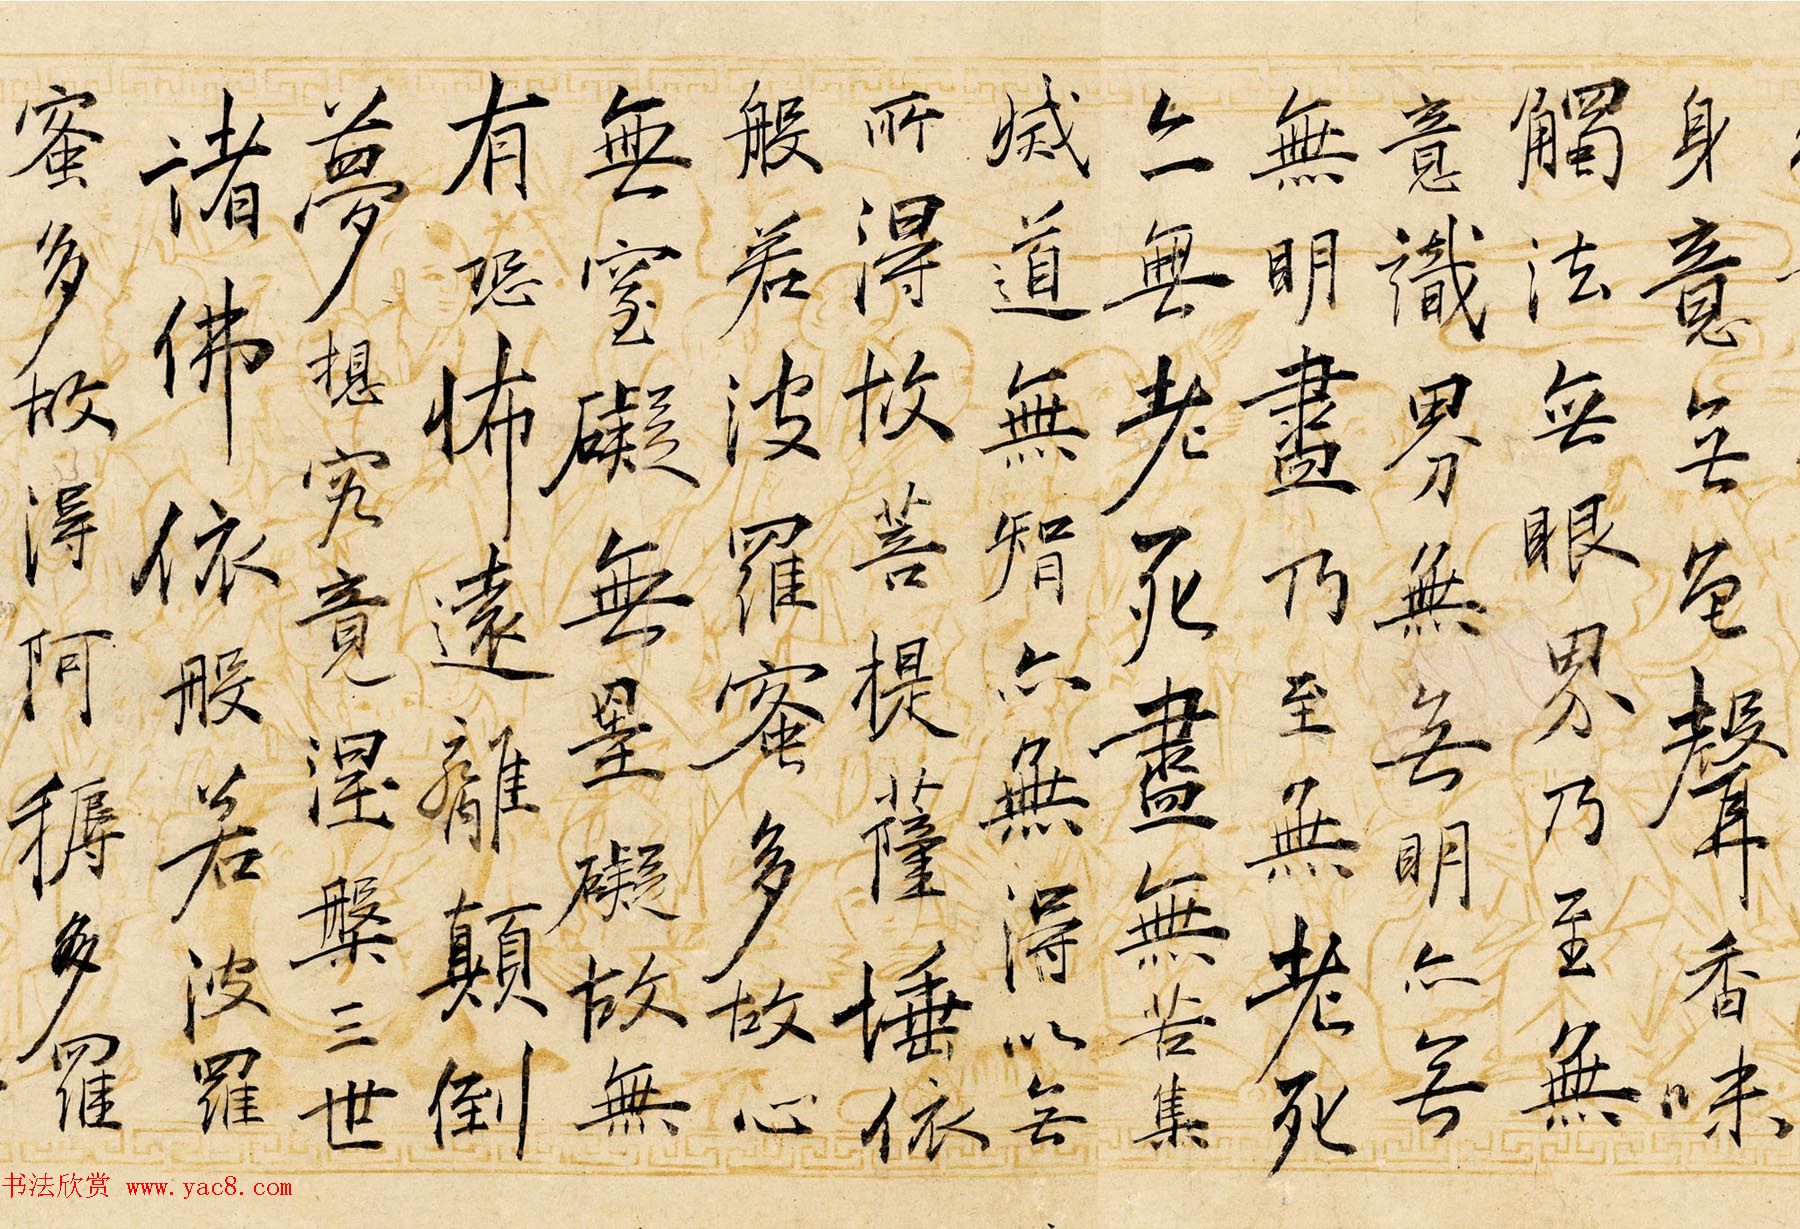 身意无色聲香味
觸法无眼界乃至無
意識界無无明亦无
無明盡乃至無老死
亦無老死盡無苦集
滅道無智亦無得以无
所得故菩提薩埵依
般若波羅蜜多故心
無罣礙無罣礙故無
有恐怖遠離顛倒
夢想究竟涅槃三世
諸佛依般若波羅
蜜多故得阿耨多羅
书法欣赏 www.yac8.com